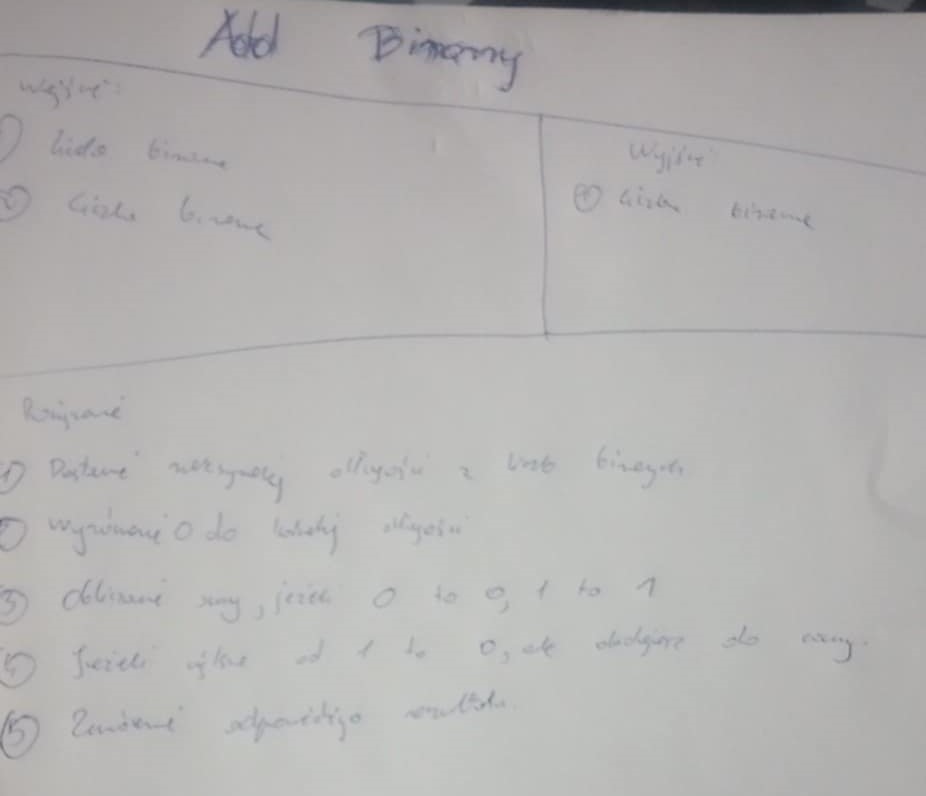 Add Binarny
Wejście:
① liczba binarna
② liczba binarna
Wyjście
① liczba binarna
Rozwiązanie
① Dostanie maksymalnej długości z liczb binarnych
② Wyrównanie 0 do każdej długości
③ obliczanie sumy, jeżeli 0 to 0, 1 to 1
④ Jeżeli większe od 1 to 0, ale do
⑤ Zwrócenie odpowiedniego rezultatu.